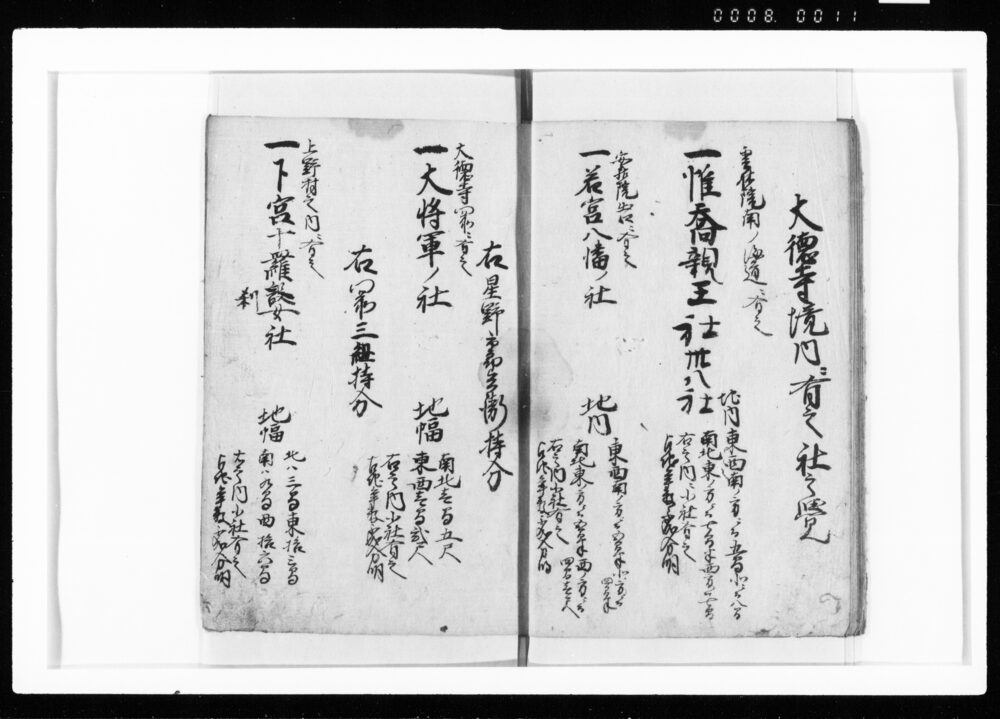 0008. 0011
大徳寺境内ニ有之社之覺
雲林院南ノ海道ニ有之
一惟喬親王社卅八社
地内東西南ノ方ニ而五間北ニ而八間
南北東ノ方ニ而
右之内ニ小社有之
年数不分明
一若宮八幡ノ社
地内
東西南ノ方ニ而
南北東ノ方ニ而
右之内小社有之
年数不分明
右星野市郎兵衛持分
大徳寺門前ニ有之
一大将軍ノ社
地幅
南北壱間五尺
東西壱間弐尺
右之内小社有之
年数不分明
右門前三組持分
上野村之内ニ有之
一下宮十羅設女社
刹
地幅
北ハ三間東拾三間
南ハ九間西拾六間
右之内小社有之
年数不分明